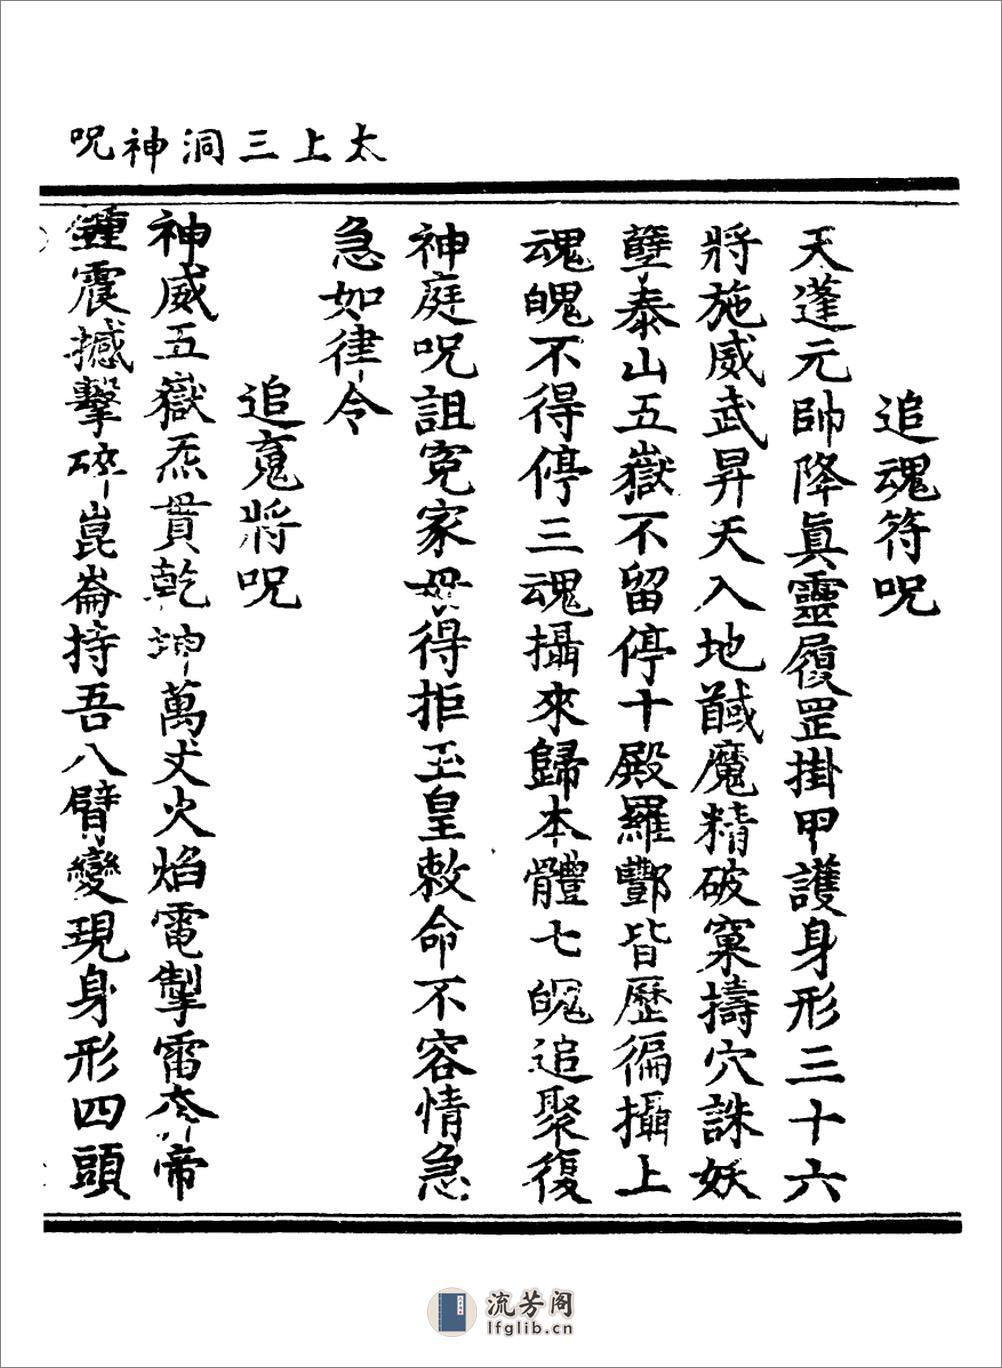 太上三洞神呪
追魂符呪
天蓬元帥降眞靈履罡掛甲護身形三十六
將施威武昇天入地馘魔精破窠擣穴誅妖
孽泰山五嶽不留停十殿羅酆皆歷徧攝上
魂魄不得停三魂攝來歸本體七魄追聚復
神庭呪詛寃家毋得拒玉皇敕命不容情急
急如律令
追䰟將呪
神威五嶽炁貫乾坤萬丈火焰電掣雷奔帝
鍾震撼擊碎崑崙持吾八臂變現身形四頭
流芳阁
lfglib.cn